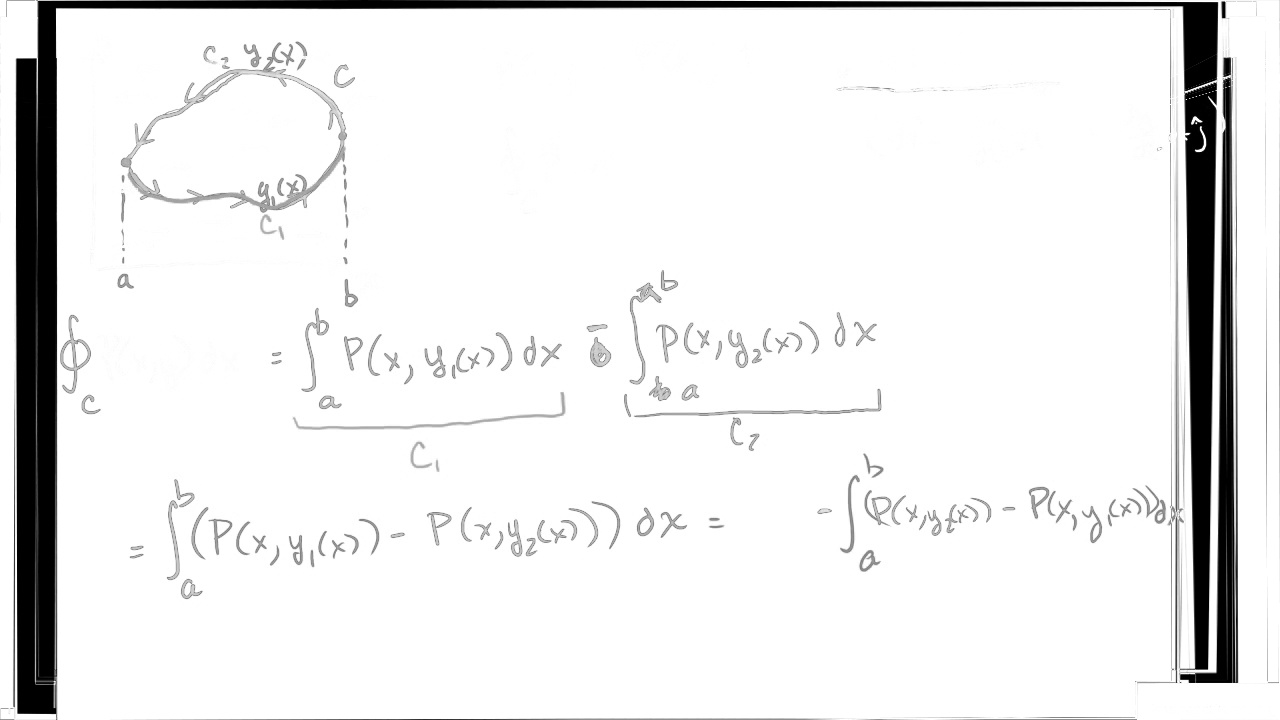 C₂ y₂(x) C
y₁(x)
C₁
a b
∮_C = ∫_a^b P(x, y₁(x)) dx - ∫_a^b P(x, y₂(x)) dx
C₁ C₂
= ∫_a^b (P(x, y₁(x)) - P(x, y₂(x))) dx = - ∫_a^b (P(x, y₂(x)) - P(x, y₁(x))) dx
ĵ)